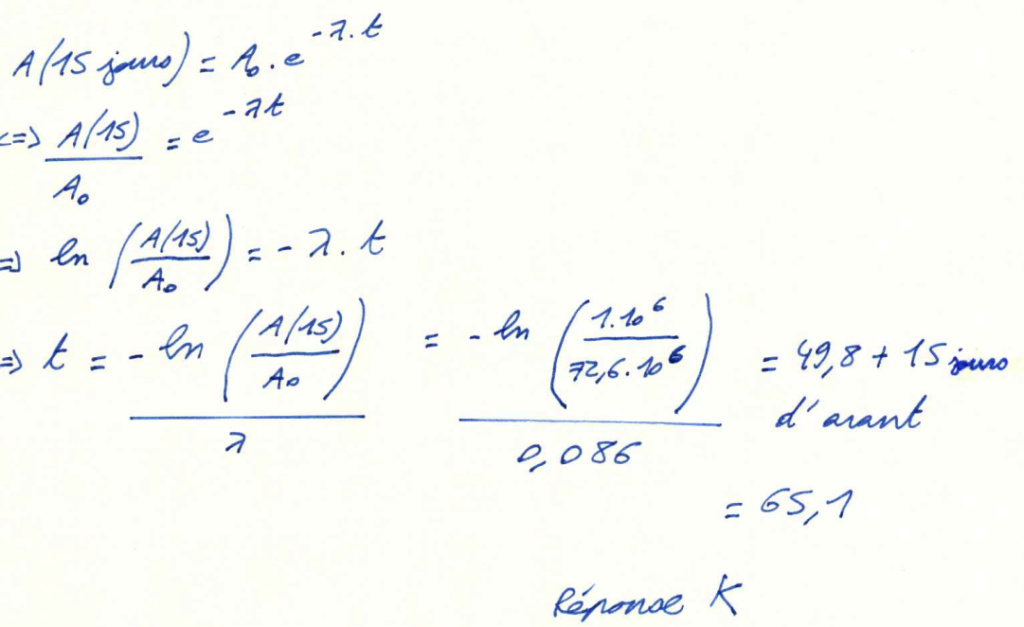 A(15 jours) = A₀ . e^(-λ.t)
<=> A(15)/A₀ = e^(-λt)
=> ln (A(15)/A₀) = -λ. t
=> t = -ln (A(15)/A₀) / λ = -ln (1.10⁶ / 72,6.10⁶) / 0,086 = 49,8 + 15 jours
d'avant
= 65,1
Réponse K